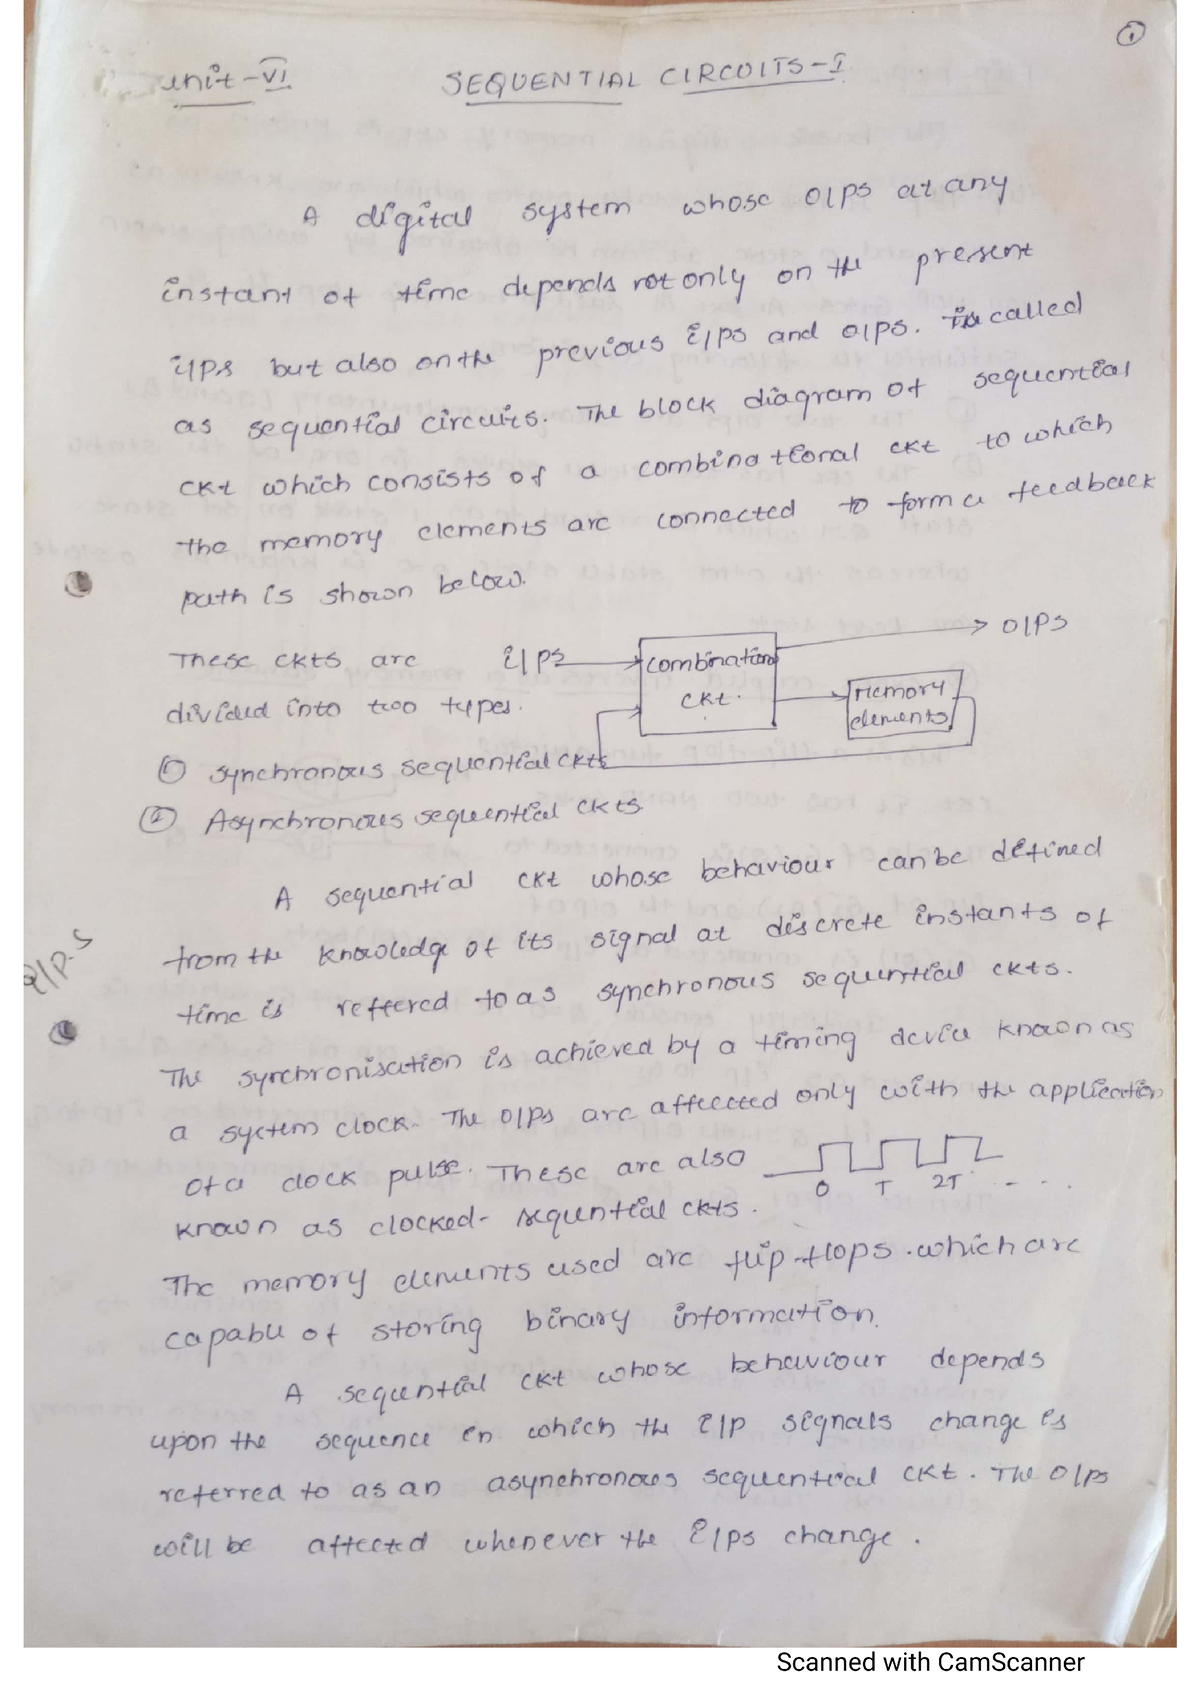 1
unit-VI SEQUENTIAL CIRCUITS-I
A digital system whose O/Ps at any
instant of time depends not only on the present
i/ps but also on the previous i/ps and o/ps. is called
as sequential circuits. The block diagram of sequential
ckt which consists of a combinational ckt to which
the memory elements are connected to form a feedback
path is shown below.
These ckts are
divided into two types.
I/PS
combination
ckt.
Memory
elements
O/PS
① synchronous sequential ckts
② Asynchronous sequential ckts.
A sequential ckt whose behaviour can be defined
from the knowledge of its signal at discrete instants of
time is reffered to as synchronous sequential ckts.
The synchronisation is achieved by a timing device known as
a system clock. The o/ps are affeccted only with the application
of a clock pulse. These are also
0 T 2T - - - .
known as clocked- sequential ckts.
The memory elements used are flip-flops. which are
capable of storing binary information.
A sequential ckt whose behaviour depends
upon the sequence in which the i/p signals change is
referred to as an asynchronous sequential ckt. The o/ps
will be affected whenever the i/ps change.
Scanned with CamScanner